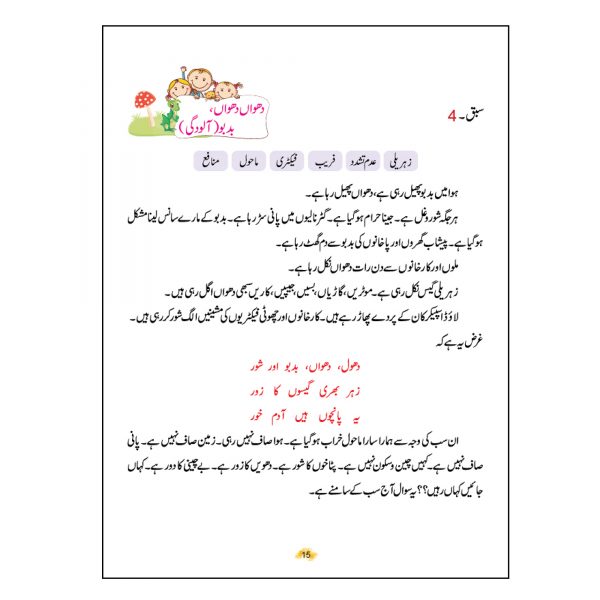 سبق۔ 4
دھواں دھواں،
بدبو (آلودگی)
زہریلی عدم تشدد فریب فیکٹری ماحول منافع
ہوا میں بدبو پھیل رہی ہے، دھواں پھیل رہا ہے۔
ہر جگہ شور و غل ہے۔ جینا حرام ہو گیا ہے۔ گٹر نالیوں میں پانی سڑ رہا ہے۔ بدبو کے مارے سانس لینا مشکل
ہو گیا ہے۔ پیشاب گھروں اور پاخانوں کی بدبو سے دم گھٹ رہا ہے۔
ملوں اور کارخانوں سے دن رات دھواں نکل رہا ہے۔
زہریلی گیس نکل رہی ہے۔ موٹریں، گاڑیاں، بسیں، جیپیں، کاریں سبھی دھواں اگل رہی ہیں۔
لاؤڈ اسپیکر کان کے پردے پھاڑ رہے ہیں۔ کارخانوں اور چھوٹی فیکٹریوں کی مشینیں الگ شور کر رہی ہیں۔
غرض یہ ہے کہ
دھول، دھواں، بدبو اور شور
زہر بھری گیسوں کا زور
یہ پانچوں ہیں آدم خور
ان سب کی وجہ سے ہمارا سارا ماحول خراب ہو گیا ہے۔ ہوا صاف نہیں رہی۔ زمین صاف نہیں ہے۔ پانی
صاف نہیں ہے۔ کہیں چین و سکون نہیں ہے۔ پٹاخوں کا شور ہے۔ دھویں کا زور ہے۔ بے چینی کا دور ہے۔ کہاں
جائیں کہاں رہیں؟؟ یہ سوال آج سب کے سامنے ہے۔
15